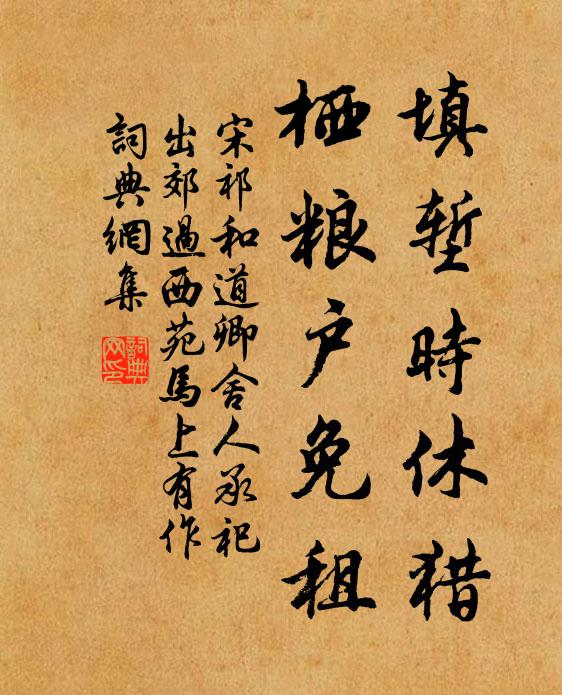 填堑時休猎
栖粮户免租
宋祁和道卿舍人承祀
出郊過西苑馬上有作
詞典網集
詞典
网印